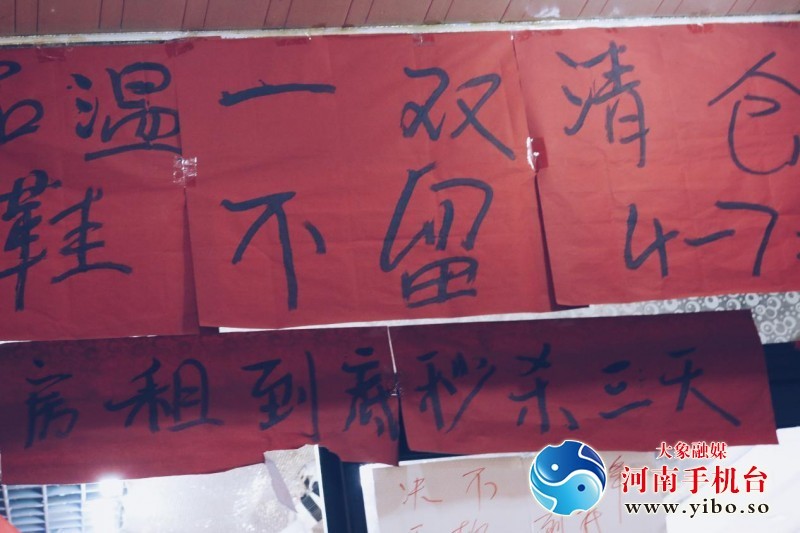 温一双清仓
鞋不留4-7
房租到底秒杀三天
决不
大象融媒
河南手机台
www.yibo.so